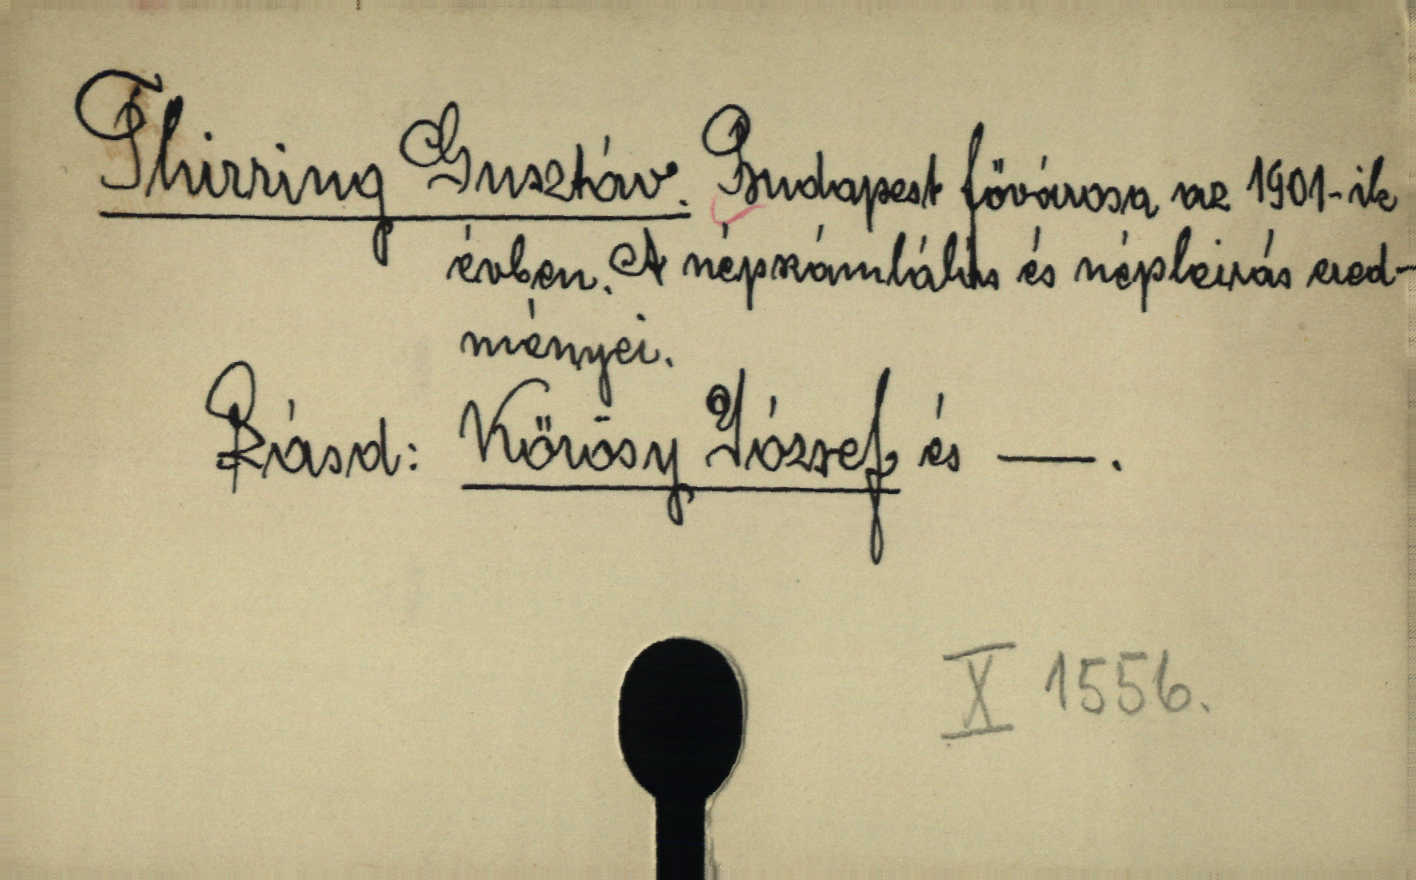 Thirring Gusztáv. Budapest főváros az 1901-ik
évben. A népszámlálás és népleirás ered-
ményei.
Lásd: Kőrösy József és —.
X 1556.